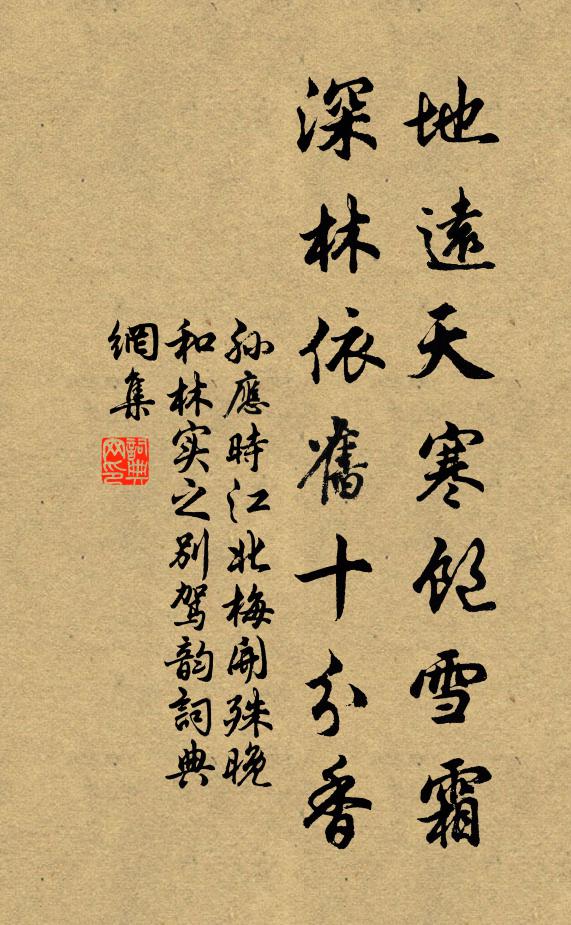 地遠天寒飽雪霜
深林依舊十分香
孙應時江北梅開殊晚
和林实之别駕韵詞典
網集
詞典網印